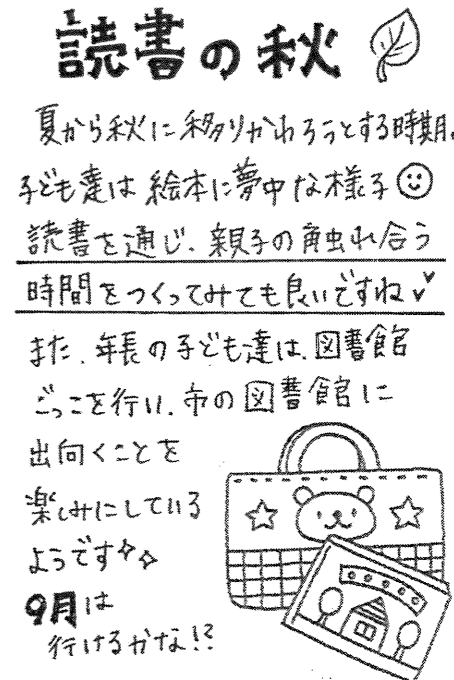 読書の秋
夏から秋に移りかわろうとする時期。
子ども達は絵本に夢中な様子
読書を通じ、親子の触れ合う
時間をつくってみても良いですね
また、年長の子ども達は、図書館
ごっこを行い、市の図書館に
出向くことを
楽しみにしている
ようです
9月は
行けるかな!?